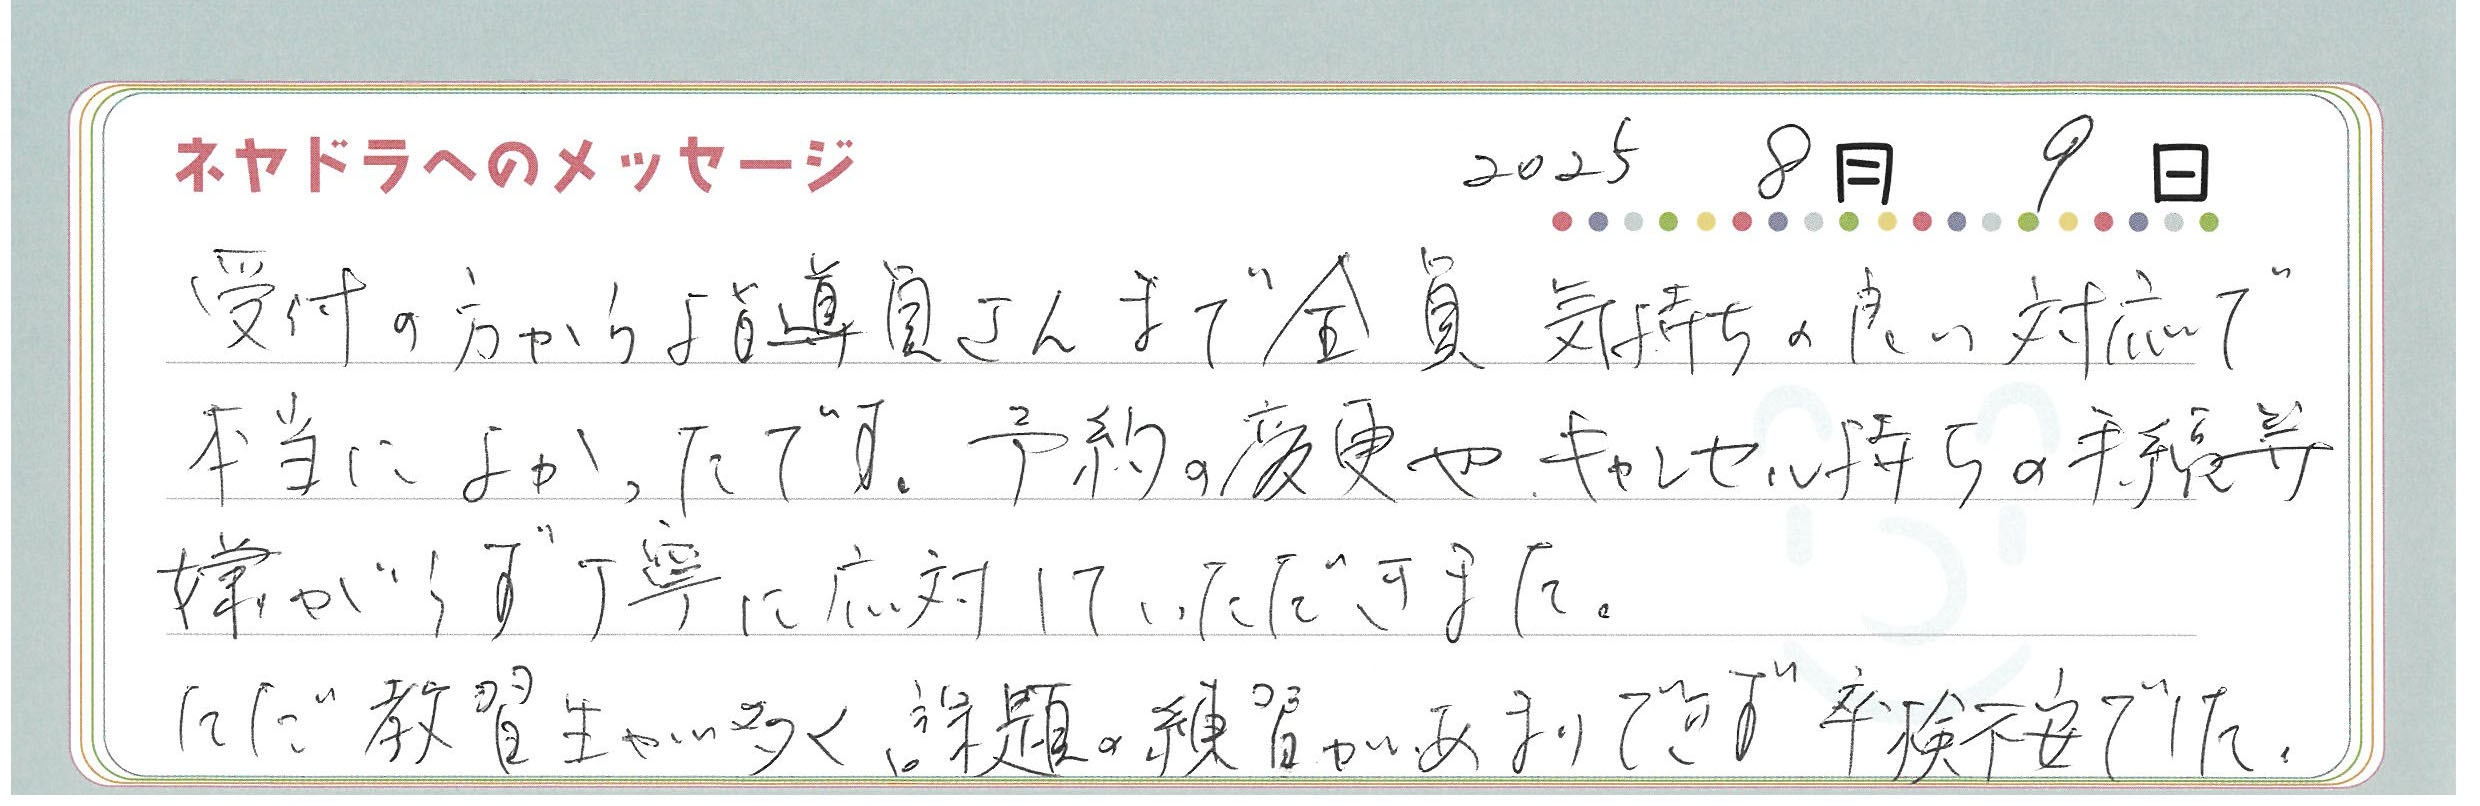 ネヤドラへのメッセージ
2025 8月 9日
受付の方から指導員さんまで全員 気持ちの良い対応で
本当によかったです。予約の変更や キャンセル待ちの手続等
嫌がらず丁寧に応対していただきました。
ただ教習生が多く課題の練習があまりできず卒検不安でした。